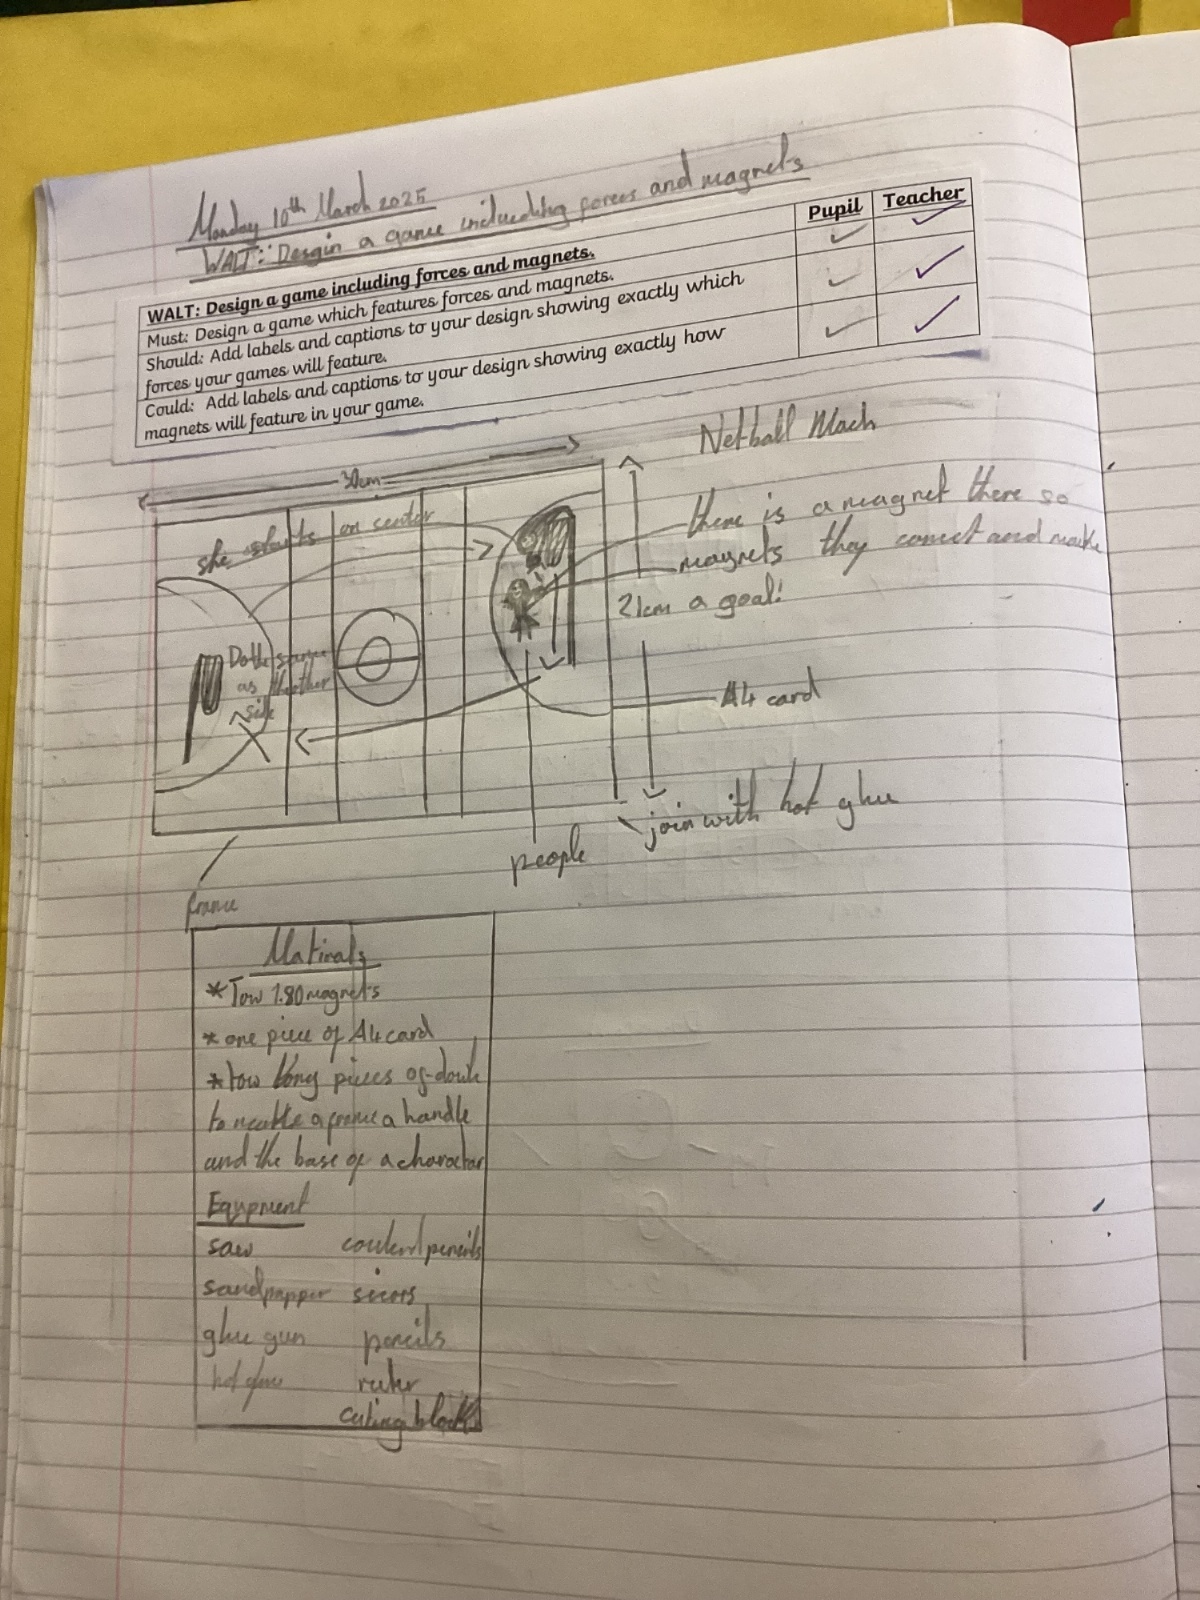 Monday 10th March 2025
WALT: Desgin a game including forces and magnets
Pupil Teacher
WALT: Design a game including forces and magnets.
Must: Design a game which features forces and magnets.
Should: Add labels and captions to your design showing exactly which
forces your games will feature.
Could: Add labels and captions to your design showing exactly how
magnets will feature in your game.
Netball Mach
30cm
she starts on center
there is a magnet there so
magnets they conect and make
21cm a goal!
Do the same
as the other
side
A4 card
join with hot glue
people
frame
Matirals
* Tow 1.80 magnets
* one piece of A4 card
* tow long pieces of
to make a frame a handle
and the base of a charactar
Equpment
saw pencils
sandpapper sicors
glue gun pencils
hot glue ruler
cuting block